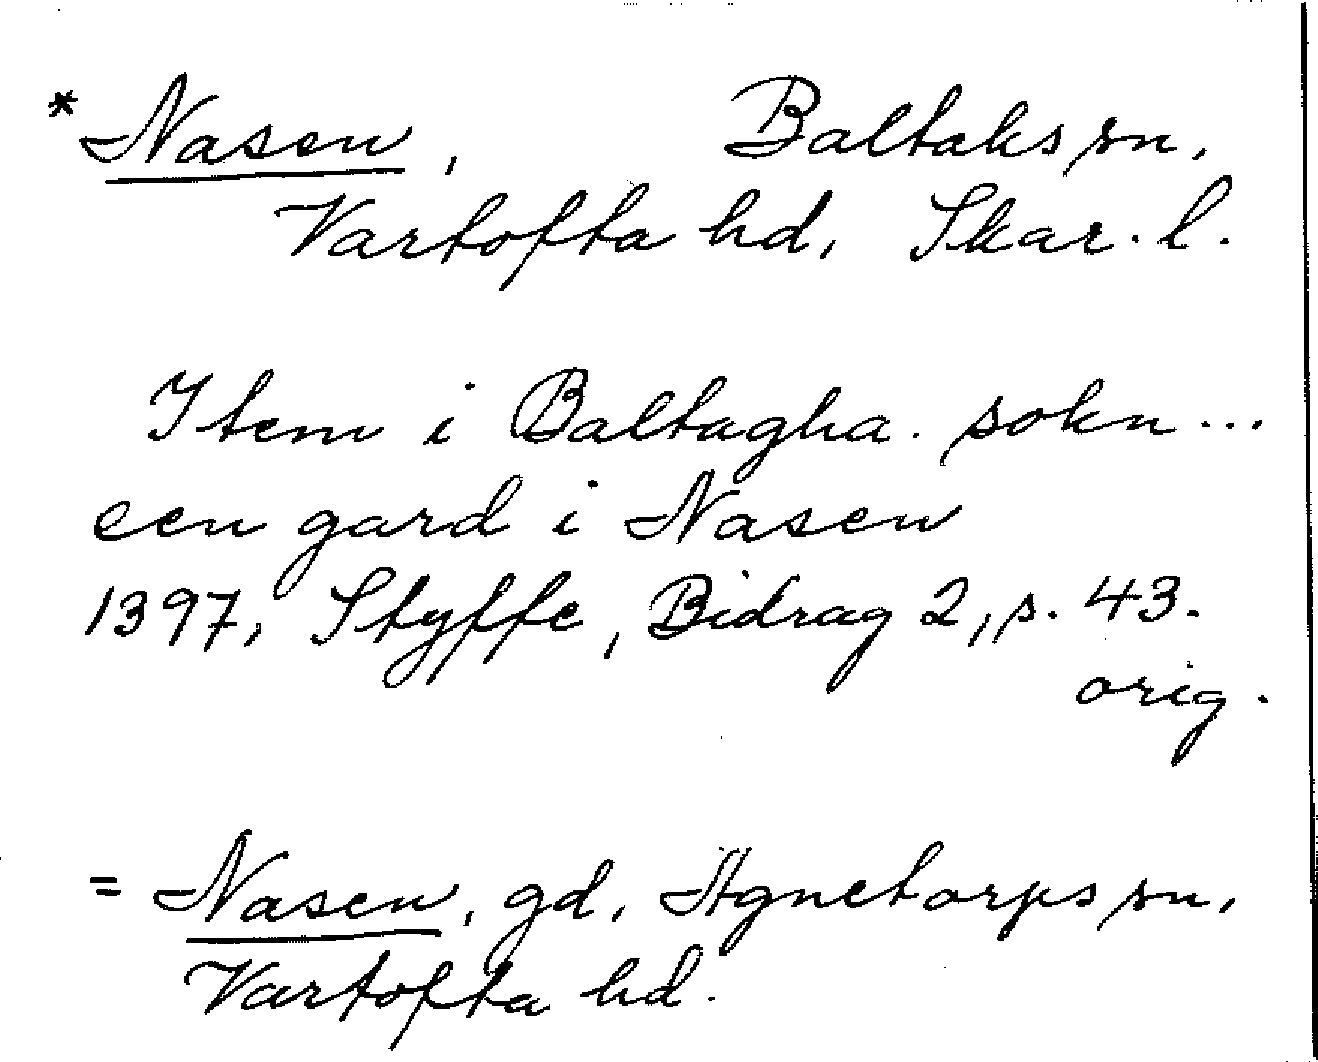 *Nasen, Baltaks sn,
Vartofta hd, Skar. l.
Item i Baltagha. sokn ...
een gard i Nasen
1397, Styffe, Bidrag 2, s. 43.
orig.
= Nasen, gd, Agnetorps sn,
Vartofta hd.